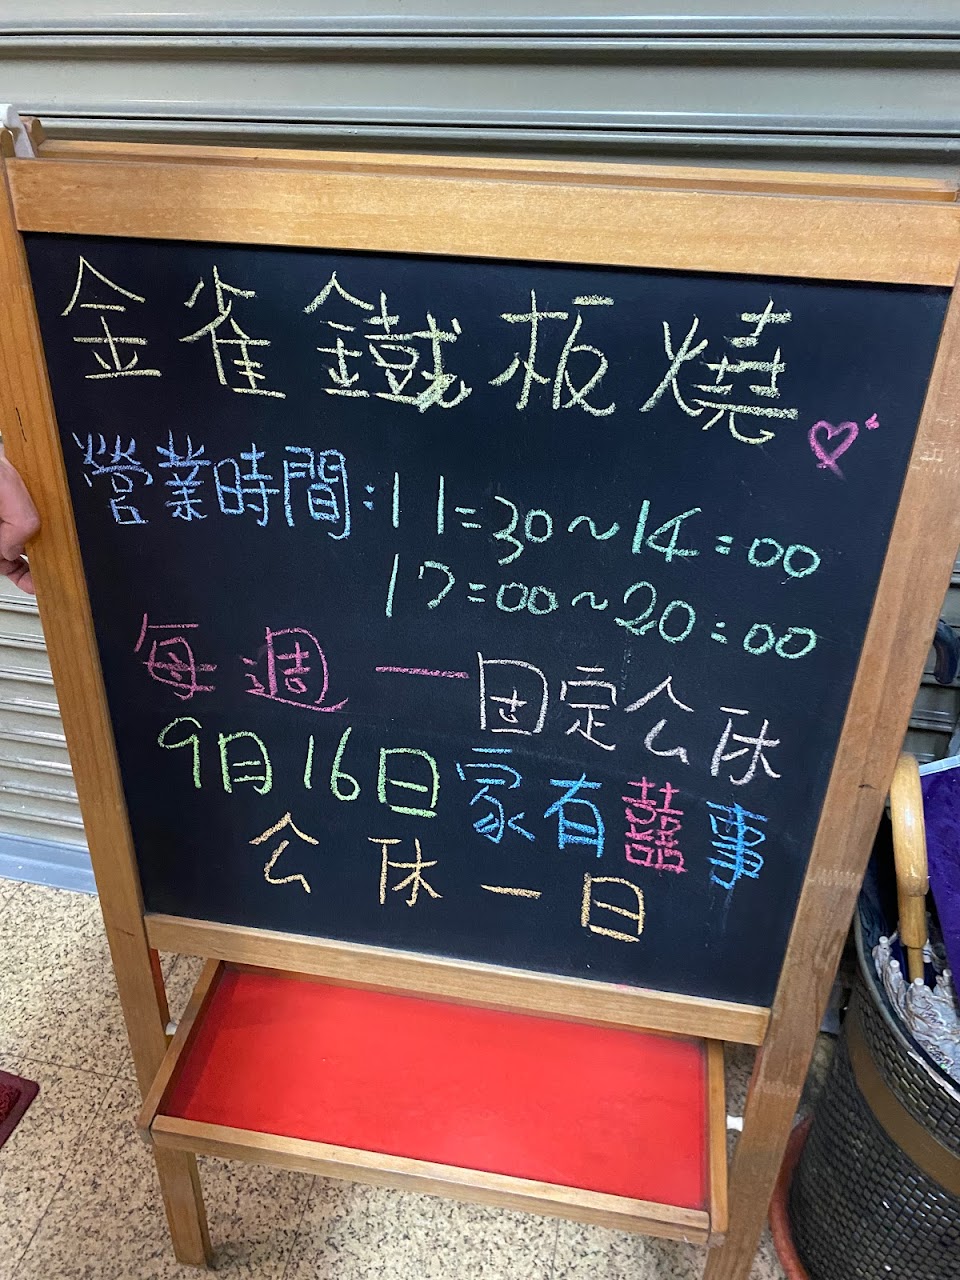 金雀鐵板燒
營業時間:11:30~14:00
17:00~20:00
每週一固定公休
9月16日家有囍事
公休一日